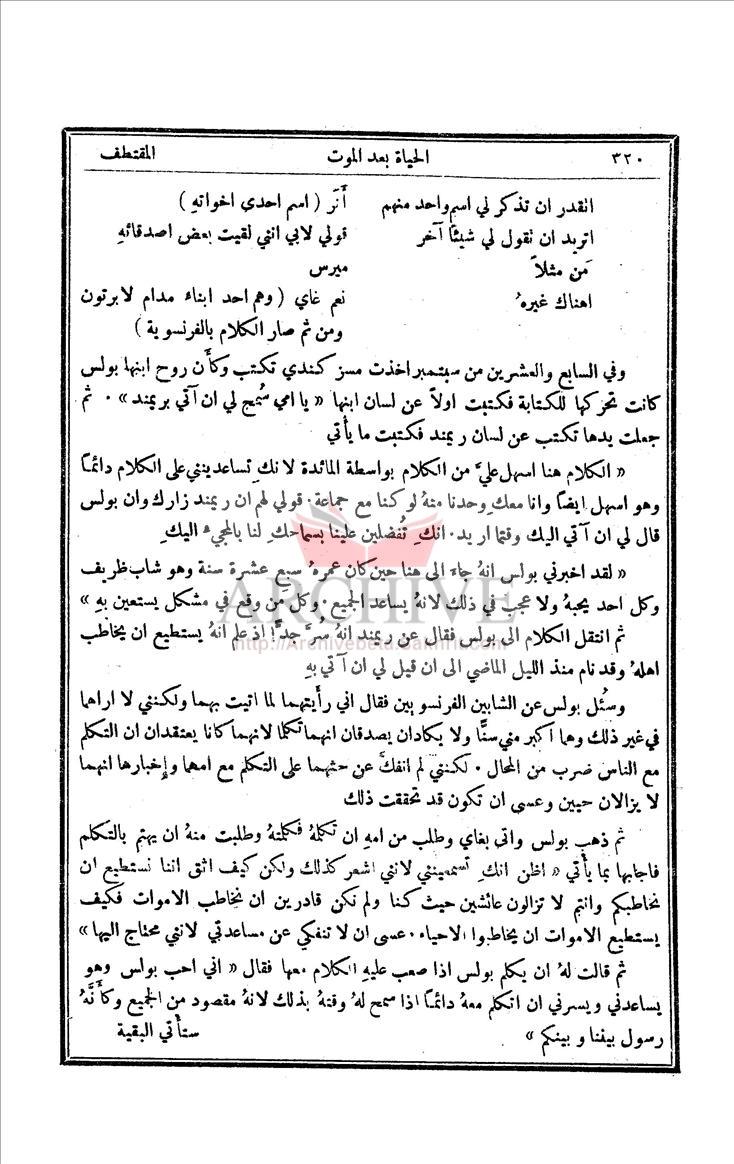 ٣٢٠ الحياة بعد الموت المقتطف
انقدر ان تذكر لي اسم واحد منهم أَنَر ( اسم احدى اخواتهِ )
اتريد ان نقول لي شيئًا آخر قولي لابي انني لقيت بعض اصدقائهِ
مَن مثلاً ميرس
اهناك غيرهُ نعم غاي ( وهم احد ابناء مدام لابرتون
ومن ثم صار الكلام بالفرنسوية )
وفي السابع والعشرين من سبتمبر اخذت مسز كندي تكتب وكأَن روح ابنها بولس
كانت تحركها للكتابة فكتبت اولاً عن لسان ابنها « يا امي سُمح لي ان آتي بريمند » . ثم
جعلت يدها تكتب عن لسان ريمند فكتبت ما يأتي
« الكلام هنا اسهل عليَّ من الكلام بواسطة المائدة لانكِ تساعدينني على الكلام دائمًا
وهو اسهل ايضًا وانا معكِ وحدنا منهُ لو كنا مع جماعة . قولي لهم ان ريمند زارك وان بولس
قال لي ان آتي اليك وقتما اريد . انكِ تُفضلين علينا بسماحكِ لنا بالمجيءِ اليكِ
« لقد اخبرني بولس انهُ جاءَ الى هنا حين كان عمرهُ سبع عشرة سنة وهو شاب ظريف
وكل احد يحبهُ ولا عجب في ذلك لانهُ يساعد الجميع . وكل مَن وقع في مشكل يستعين بهِ »
ARCHIVE
ثم انتقل الكلام الى بولس فقال عن ريمند انهُ سُرَّ جدًّا اذ علم انهُ يستطيع ان يخاطب
http://Archivebeta.Sakhrit.com
اهلهُ وقد نام منذ الليل الماضي الى ان قيل لي ان آتي بهِ
وسُئل بولس عن الشابين الفرنسويين فقال اني رأَيتهما لما اتيت بهما ولكنني لا اراهما
في غير ذلك وهما اكبر مني سنًّا ولا يكادان يصدقان انهما تكلما لانهما كانا يعتقدان ان التكلم
مع الناس ضرب من المحال . لكنني لم انفكَّ عن حثهما على التكلم مع امها وإخبارها انهما
لا يزالان حيين وعسى ان تكون قد تحققت ذلك
ثم ذهب بولس واتى بغاي وطلب من امهِ ان تكلمهُ فكلمتهُ وطلبت منهُ ان يهتم بالتكلم
فاجابها بما يأتي « اظن انكِ تسمعينني لانني اشعر كذلك ولكن كيف اثق اننا نستطيع ان
نخاطبكم وانتم لا تزالون عائشين حيث كنا ولم نكن قادرين ان نخاطب الاموات فكيف
يستطيع الاموات ان يخاطبوا الاحياء . عسى ان لا تنفكي عن مساعدتي لانني محتاج اليها »
ثم قالت لهُ ان يكلم بولس اذا صعب عليهِ الكلام معها فقال « اني احب بولس وهو
يساعدني ويسرني ان اتكلم معهُ دائمًا اذا سمح لهُ وقتهُ بذلك لانهُ مقصود من الجميع وكأَنَّهُ
رسول بيننا وبينكم » ستأتي البقية